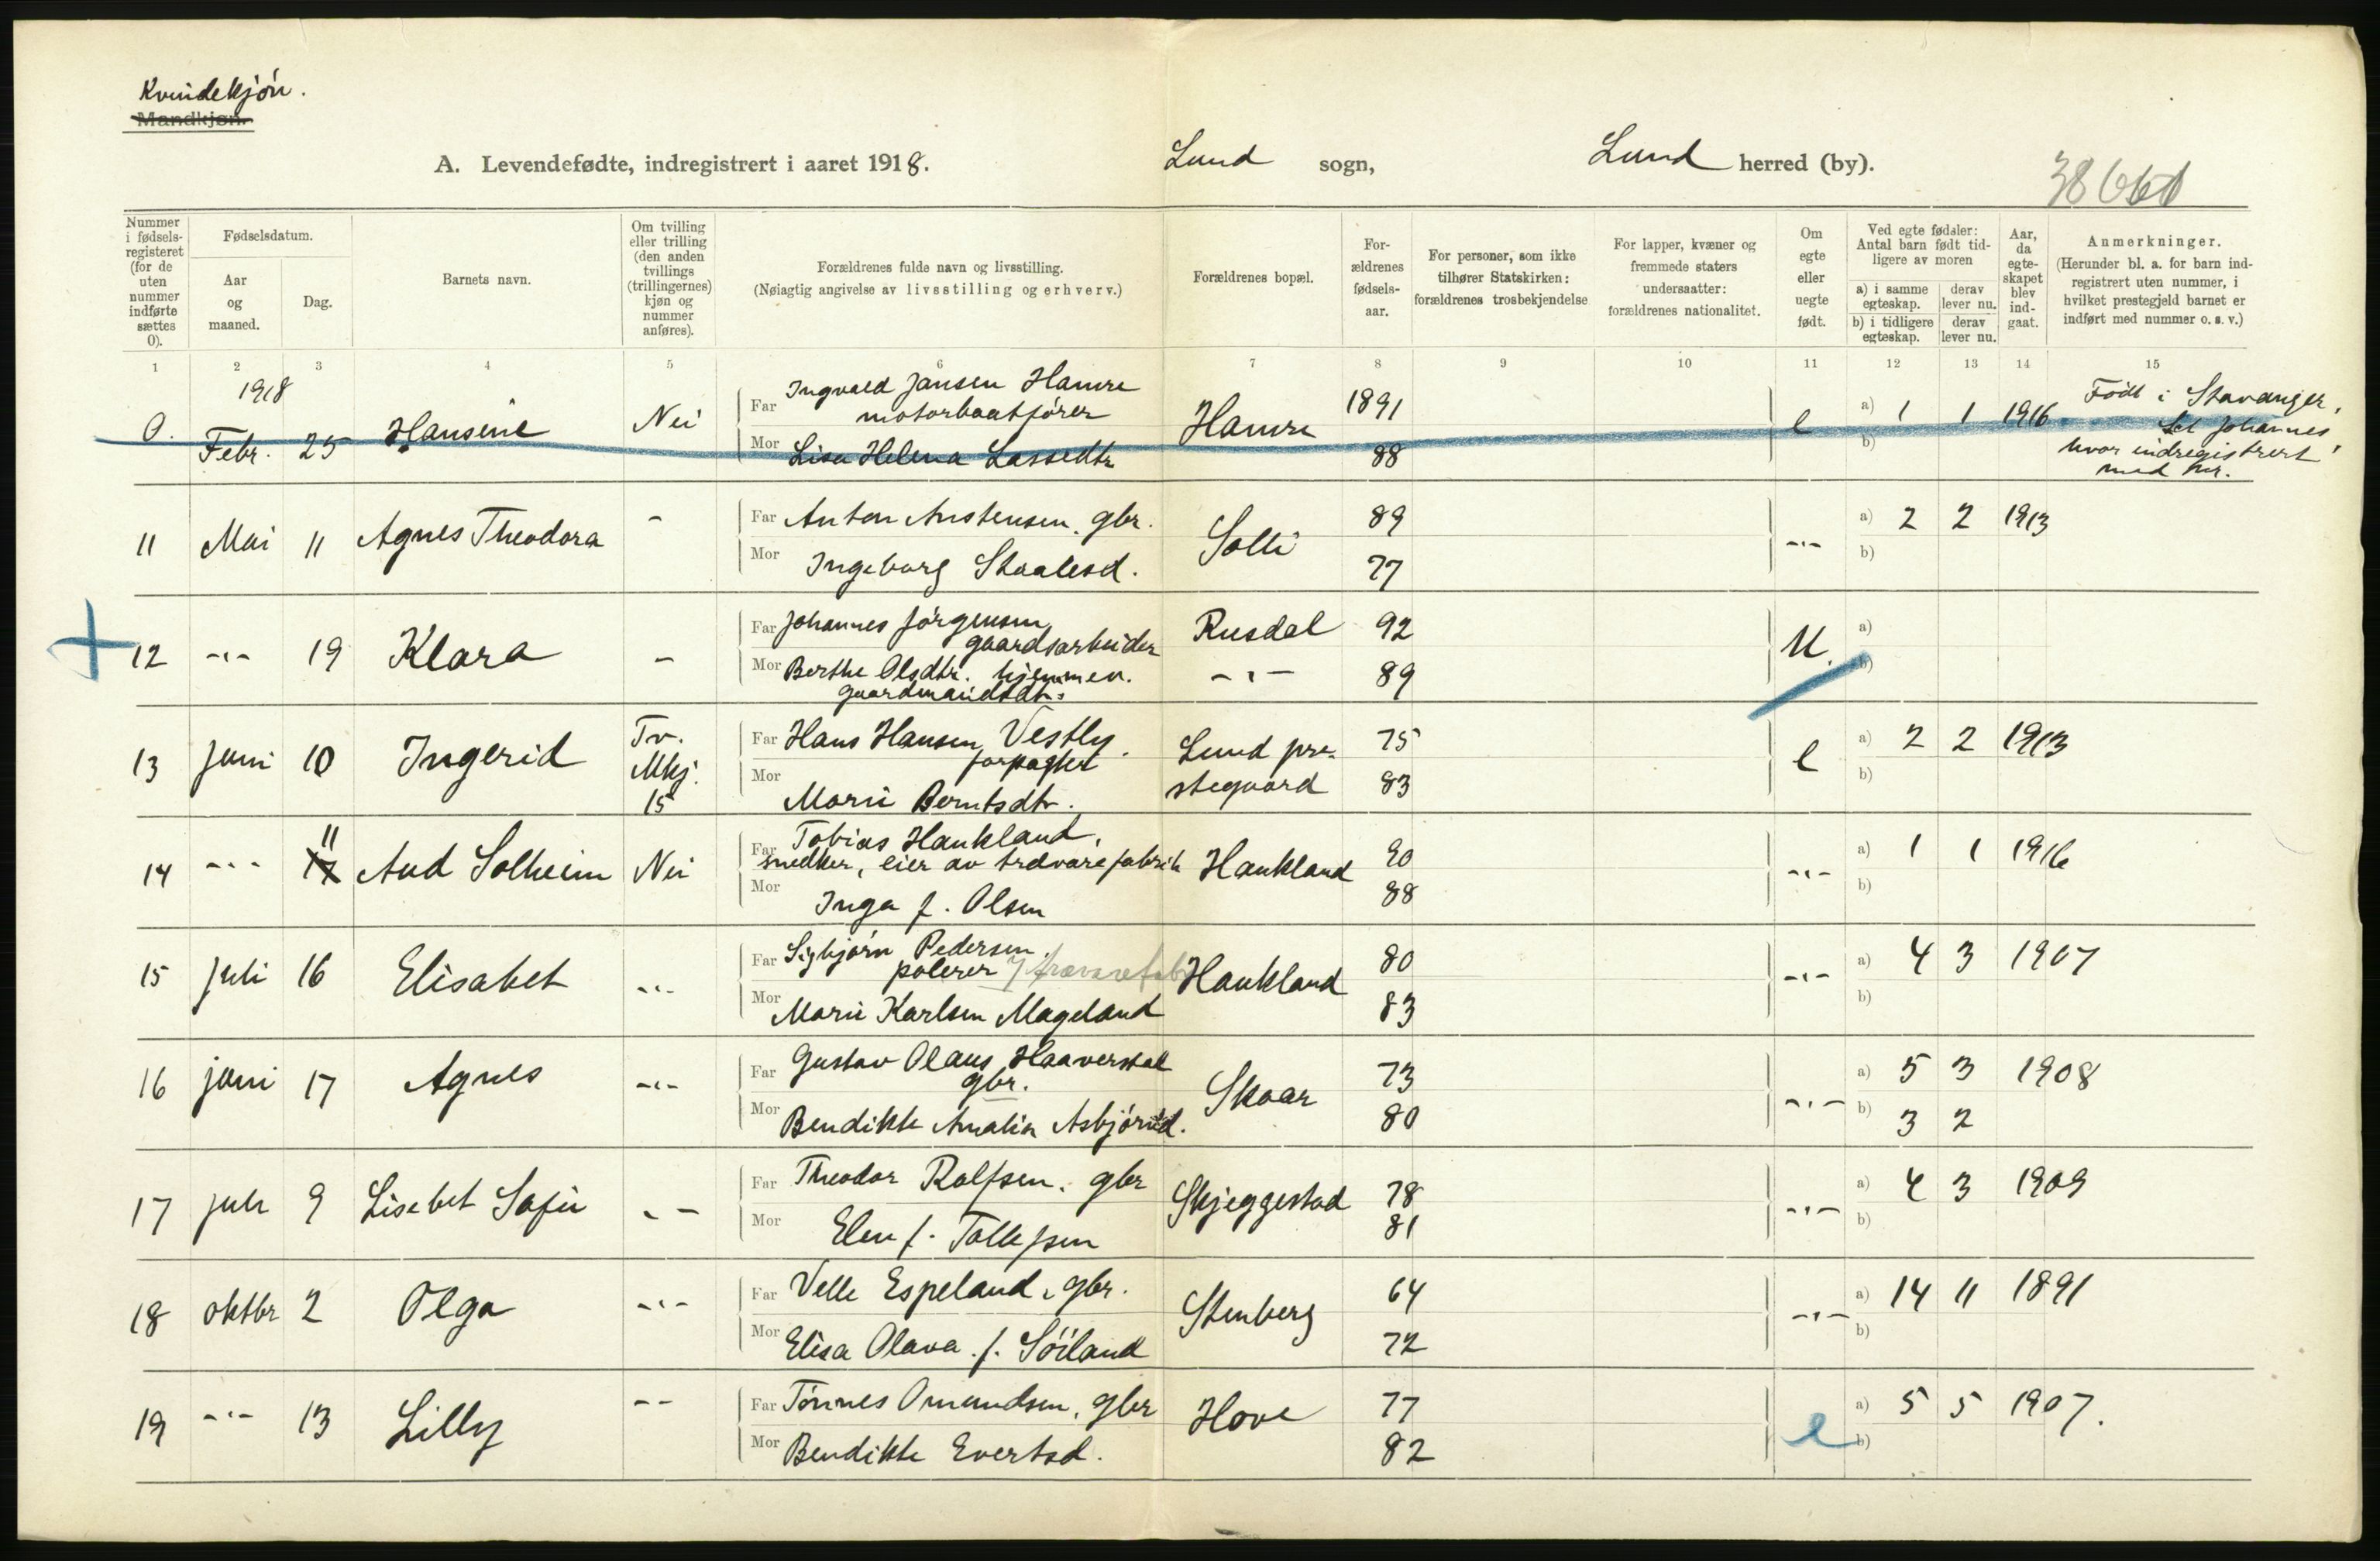 Kvindekjøn.
Mandkjøn.
A. Levendefødte, indregistrert i aaret 1918. Lund sogn, Lund herred (by).
Nummer i fødsels-registeret (for de uten nummer indførte sættes 0). Fødselsdatum. Aar og maaned. Dag. Barnets navn. Om tvilling eller trilling (den anden tvillings (trillingernes) kjøn og nummer anføres). Forældrenes fulde navn og livsstilling. (Nøiagtig angivelse av livsstilling og erhverv.) Forældrenes bopæl. For-ældrenes fødsels-aar. For personer, som ikke tilhører Statskirken: forældrenes trosbekjendelse For lapper, kvæner og fremmede staters undersaatter: forældrenes nationalitet. Om egte eller uegte født. Ved egte fødsler: Antal barn født tid-ligere av moren a) i samme egteskap. derav lever nu. b) i tidligere egteskap. derav lever nu. Aar, da egte-skapet blev ind-gaat. Anmerkninger. (Herunder bl. a. for barn ind-registrert uten nummer, i hvilket prestegjeld barnet er indført med nummer o. s. v.)
1 2 3 4 5 6 7 8 9 10 11 12 13 14 15
1918
0. Febr. 25 Hansine Nei Far Ingvald Jansen Hamre motorbaatfører Hamre 1891 e a) 1 1 1916 Født i Stavanger,
Mor Lisa Helena Lassedtr 88 b) St Johannes,
hvor indregistrert
med nr.
11 Mai 11 Agnes Theodora - Far Anton Austensen, gbr. Solli 89 -"- a) 2 2 1913
Mor Ingeborg Staalesd. 77 b)
12 -"- 19 Klara - Far Johannes Jørgensen gaardsarbeider Rusdal 92 U. a)
Mor Berthe Olsdtr. hjemmev. gaardmandsdtr. -"- 89 b)
13 Juni 10 Ingerid Tv. Mkj. 15 Far Hans Hansen Vestly. forpagter Lund pre-stegaard 75 e a) 2 2 1913
Mor Marie Berntsdtr. 83 b)
14 -"- 11 Aud Solheim Nei Far Tobias Haukland, snedker, eier av trævarefabrik Haukland 90 -"- a) 1 1 1916
Mor Inga f. Olsen 88 b)
15 Juli 16 Elisabet -"- Far Sigbjørn Pedersen. polerer i trævarefabr Haukland 80 -"- a) 4 3 1907
Mor Marie Karlsen Mageland 83 b)
16 juni 17 Agnes -"- Far Gustav Olaus Haaverstad gbr. Skaar 73 -"- a) 5 3 1908
Mor Bendikte Amalia Asbjørnsd. 80 b) 3 2
17 juli 9 Lisebet Sofie - - Far Theodor Rolfsen, gbr Skjeggestad 78 -"- a) 4 3 1909
Mor Elen f. Tollefsen 81 b)
18 oktbr 2 Olga -"- Far Velle Espeland, gbr. Stenberg 64 -"- a) 14 11 1891
Mor Elisa Olava f. Söiland 72 b)
19 -"- 13 Lilly -- Far Tönnes Omundsen, gbr Hove 77 e a) 5 5 1907.
Mor Bendikte Evertsd. 82 b)